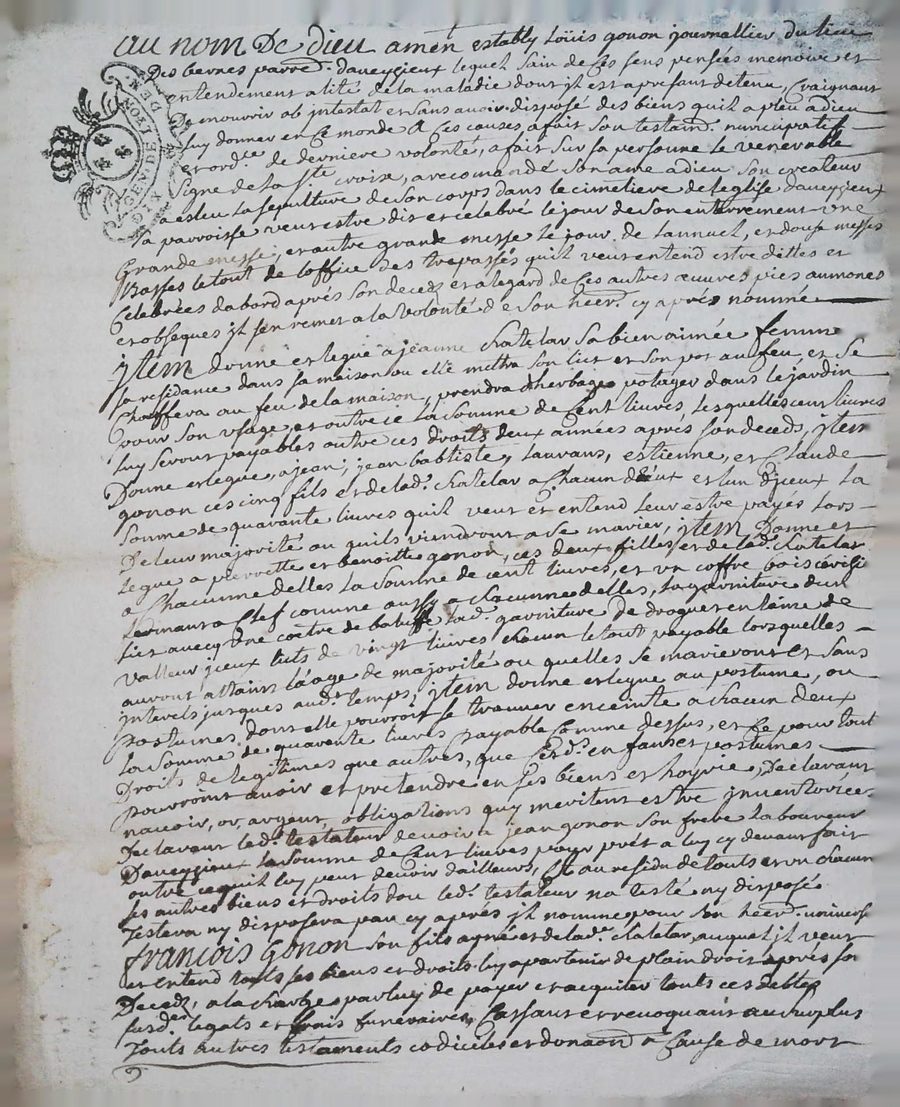 GEN. DE LYON. DEN.
SIX
au nom De dieu amen estably Loüis gonon journallier du lieu
Des bernes parre. daveyzieux lequel sain de ses sens pensées memoire et
entendement alité de la maladie dont jl est a presant detenu, Craignant
De mourrir ab intestat et sans avoir disposé des biens quil a pleu a dieu
luy donner en Ce monde A Ces causes, a fait son testamt. nuncupatif
et ordre. de derniere volonté, a fait sur sa personne le venerable
signe de la Ste croix, a recomandé son ame a dieu son createur
a esleu La sepulture de son corps dans le cimetiere de leglise daveyzieux
sa parroisse veut estre dit et celebré le jour de son enterrement une
Grande messe, et autre grande messe le jour de lannuel, et douse messes
Basses le tout de loffice des trepassés quil veut entend estre dittes et
Celebrées dabord aprés son decedz et a legard de Ces autres œuvres pies aumones
et obseques jl sen remet a la volonté de son heert. cy aprés nommée
jtem donne et legue a jeanne chatelar sa bien aimée femme
sa residance dans sa maison ou elle mettra son lict et son pot au feu, et se
chauffera au feu de la maison, prendra dherbages potager dans le jardin
pour son usage et outre ce La somme de Cent livres, lesquelles cent livres
luy seront payables outre ces droits deux années aprés son decedz, jtem
Donne et legue, a jean, jean baptiste, Laurans, estienne, et Claude
gonon ces cinq fils et de lad. chatelar a Chacun deux et lun djeux La
somme de quarante livres quil veut et entend leur estre payés lors
De leur majorité ou quils viendront a se marier, jtem Donne et
legue a pierrette et benoitte gonon, ces deux filles, et de lad. chatelar
a Chacunne delles La somme de cent livres, et un coffre bois cerisier
fermant a Clef comme aussy a chacunne delles, La garniture dun
lict avec une couttre de baluffe lad. garniture De droguet en laine de
valleur jceux licts de vingt livres chacun le tout payable lorsquelles
auront attaint léage de majorité ou quelles se marieront et sans
interets jusques aud. temps, jtem donne et legue au postume, ou
postumes dont elle pourroit se trouver enceinte a chacun deux
la somme de quarante livres payable Comme dessus, et Ce pour tout
Droits de legitimes que autres, que Cesd. enfans et postumes
pourroint avoir et pretendre en ses biens et hoyrie, Declarant
navoir, or, argent, obligations quy meritent estre jnventoriées
Declarant led. testateur devoir a jean gonon son frere Laboureur
Daveyzieux La somme de Cent livres pour prét a luy cy devant fait
outre ce quil luy peut devoir dailleurs, Et au residu de touts et un chacun
ses autres biens et droits dou led. testateur na testé ny disposé
Testera ny disposera par cy aprés jl nomme pour son heert. universel
françois Gonon son fils ayné et de lade. chatelar, auquel jl veut
et entend touts ses biens et droits luy apartenir de plain droit aprés son
Decedz, a la charge par luy de payer et acquiter touts ces debtes
susds. legats et frais funeraires, Cassant et revoquant au surplus
Touts autres testaments codiciles et donaõn a Cause de mort